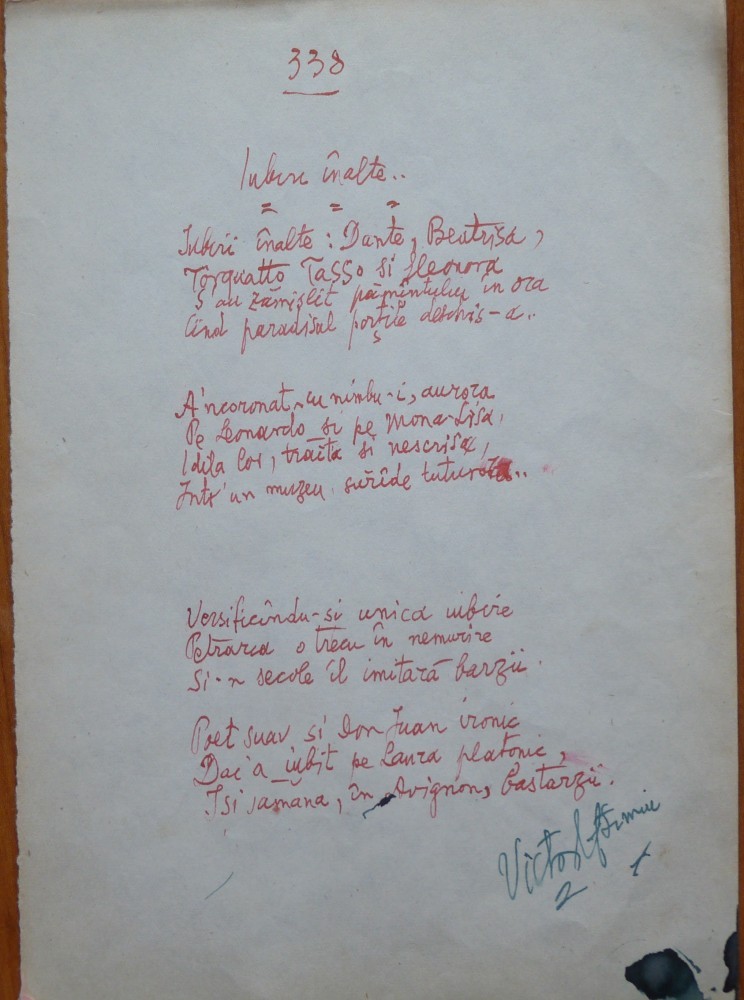 338
Iubiri înalte..
Iubiri înalte : Dante, Beatrisa,
Torquatto Tasso si Eleonora
S'au zămislit pămîntului în ora
Cînd paradisul porțile deschis-a..
A'ncoronat, cu nimbu-i, aurora
Pe Leonardo si pe Mona-Lisa,
Idila lor, trăita si nescrisa,
Într'un muzeu surîde tuturora..
Versificîndu-si unica iubire
Petrarca o trecu în nemurire
Si-n secole îl imitară barzii.
Poet suav si Don Juan ironic
Dac'a iubit pe Laura platonic,
Isi samăna, în Avignon, bastarzii.
Victor Eftimiu
2